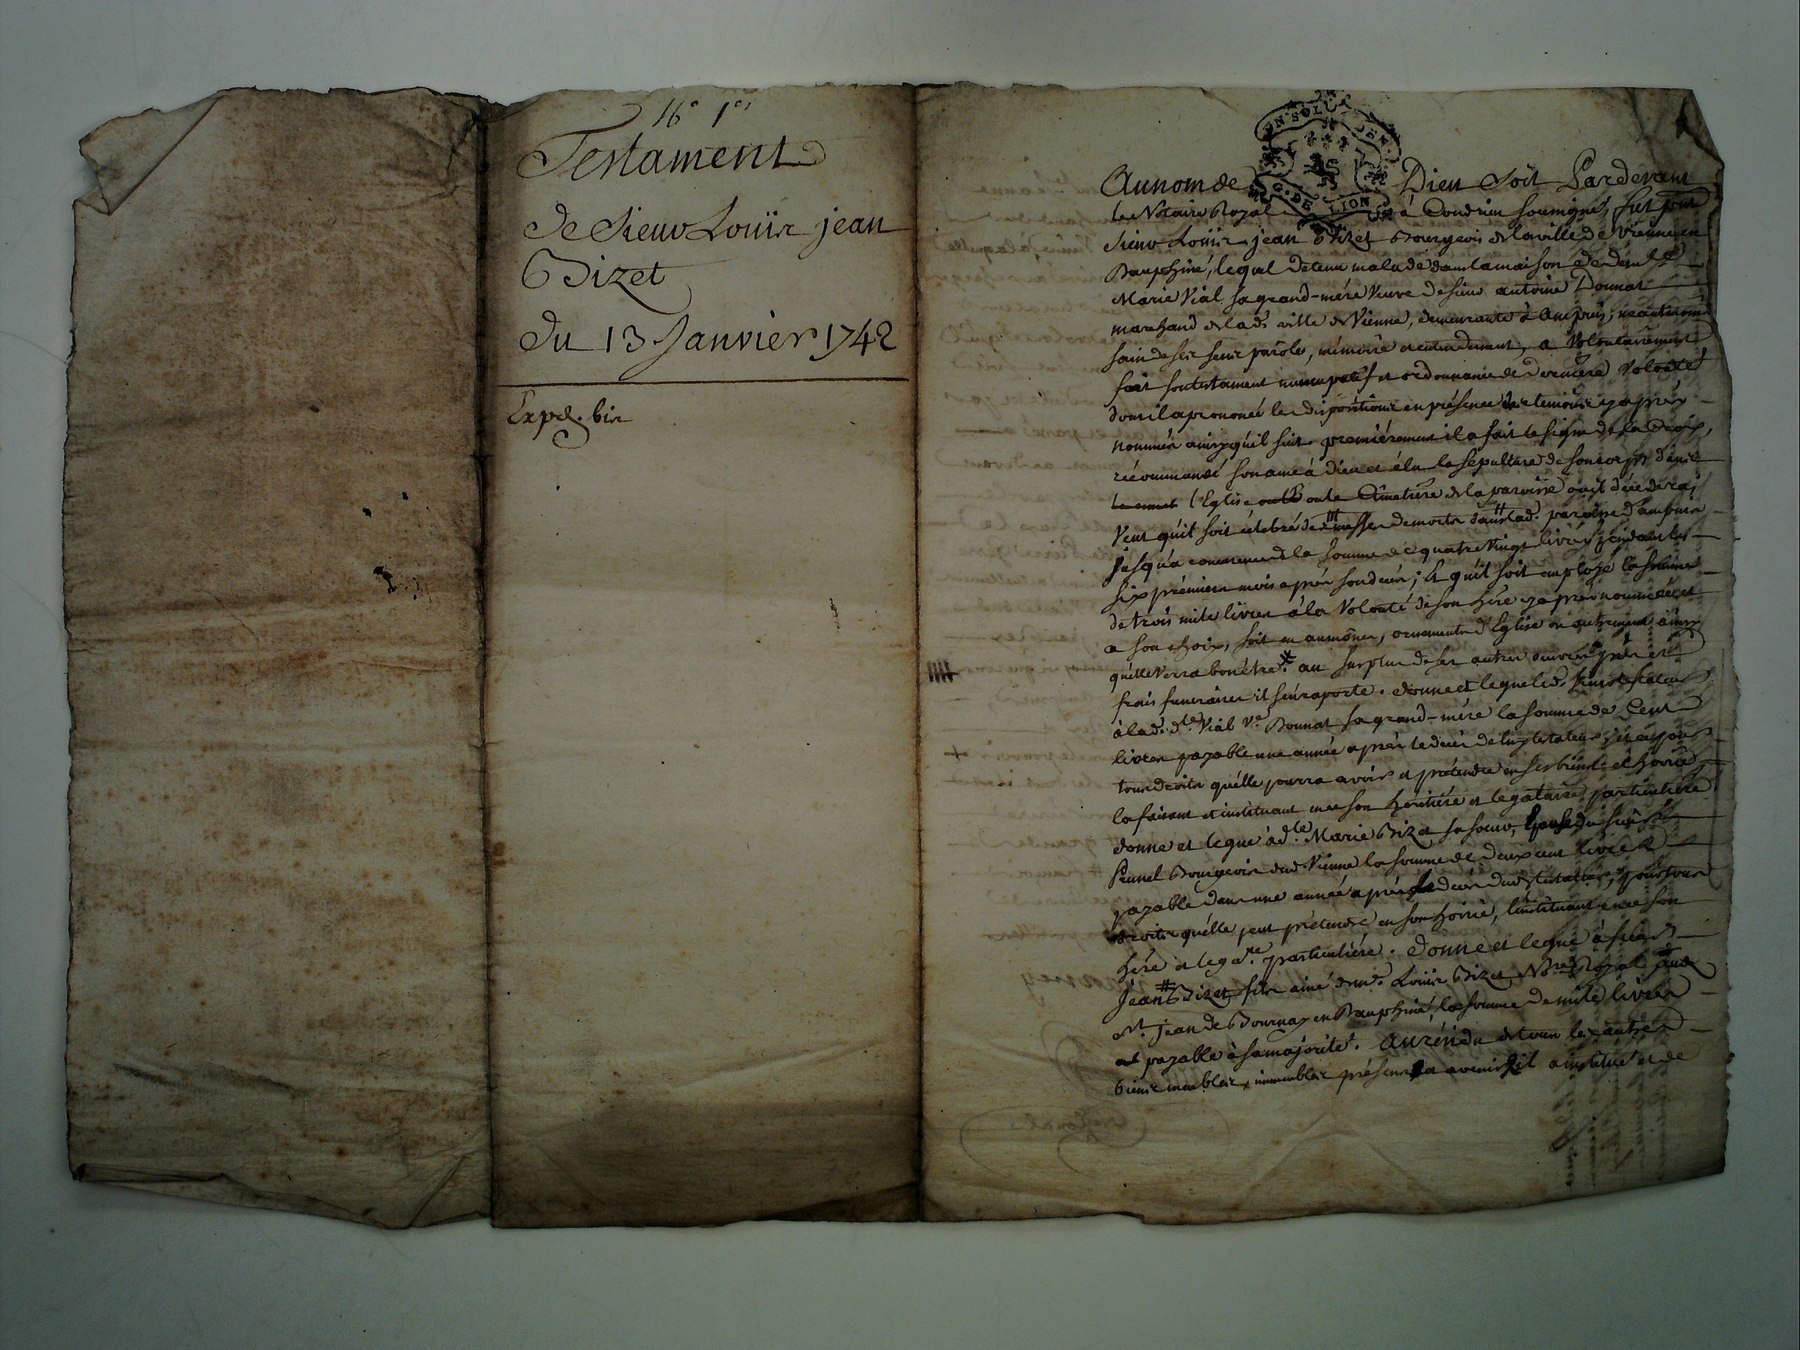 16e 1er
Testament
de Sieur Louïs jean
Bizet
du 13 Janvier 1742
Expd. bis
UN SOL
G. DE LION
Au nom de Dieu soit Pardevant
le Notaire Royal à Condrieu soussigné, fut present
Sieur Louïs jean Bizet Bourgeois de la ville de Vienne en
Dauphiné, lequel detenu malade dans la maison de
Marie Vial sa grand-mére veuve de sieur antoine Donnat
marchand de lad. ville de Vienne, demeurante à Ampuis, neantmoins
sain de ses sens parole, mémoire et entendement, a volontairement
fait son testament nuncupatif et ordonnance de derniére volonté
dont il a prononcé les dispositions en présence des temoins cy aprés
nommés ainsy qu'il suit. premiérement il a fait le signe de la Croix,
récommandé son ame à dieu et élu la sépulture de son corps dans
l'Eglise ou le Cimetiére de la paroisse où il décedera;
Veut qu'il soit célebré des messes de morts dans lad. paroisse d'ampuis
jusqu'a concurrence de la somme de quatre vingt livres pendant les
six prémiers mois aprés son decés; Et qu'il soit employé la somme
de trois mile livres à la volonté de son hére cy aprés nommée et
a son choix, soit en aumônes, ornements d'Eglise ou autrement ainsy
qu'elle verra bon étre. au surplus de ses autres œuvres pies et
frais funeraires il s'en raporte. donne et legue led. sieur testateur
à lad. dlle Vial ve Donnat sa grand-mére la somme de Cent
livres payable une année aprés le decés dud. testateur, et ce pour
tous droits qu'elle pourra avoir et prétendre en ses biens et hoirie,
la faisant et instituant en ce son héritiére et legataire particuliére.
donne et legue à dlle Marie Bizet sa sœur, Epouse du sieur
Prunel Bourgeois dud. Vienne la somme de deux cent livres
payable dans une année aprés le decés dud. testateur, pour tous
droits qu'elle peut prétendre en son hoirie, l'instituant en ce son
hére et legare particuliére. donne et legue à sieur
Jean Bizet fils ainé de mr. Louïs Bizet Nore Royal
St. jean de Bournay en Dauphiné, la somme de mile livres
payable à sa majorité. Au résidu de tous les autres
biens meubles, immeubles présens et avenir il a institué et de